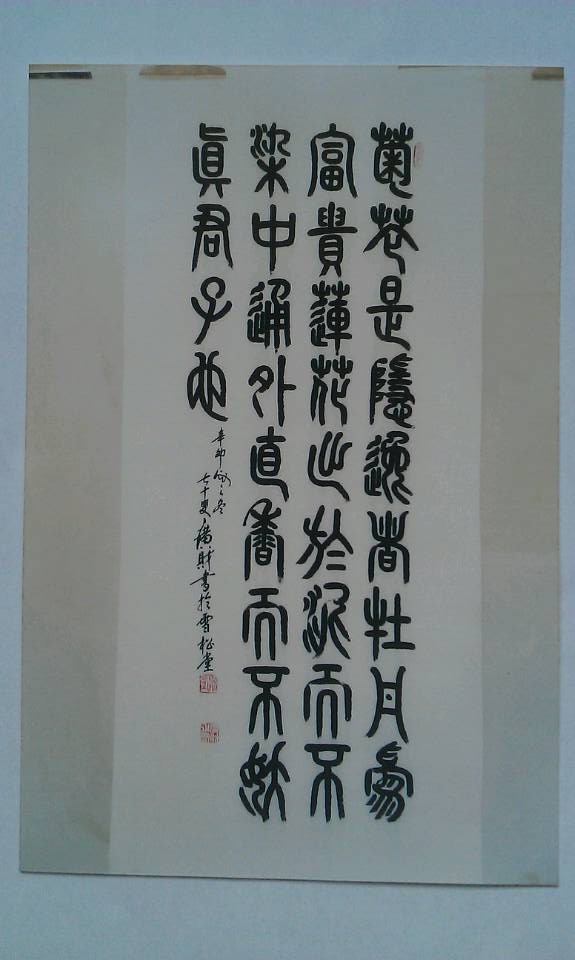 菊花是隱逸者牡丹為
富貴蓮花出於泥而不
染中通外直香而不妖
眞君子也
辛卯之冬
七十叟廣財書於雪松堂